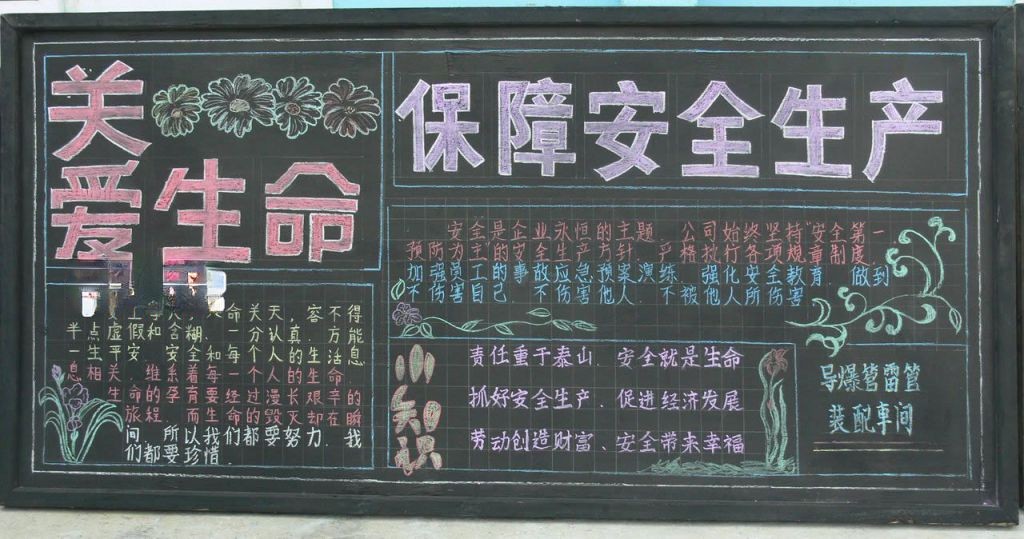 关
爱生命
保障安全生产
命关天,容不得
半点虚假和含糊.一分认真,方能
一生平安.安全和每一个人的生活息
息相关,维系着每一个人的生命
生命的孕育要经过漫长艰辛的
旅程,而生命的毁灭却在瞬
间,所以我们都要努力,我
们都要珍惜.
安全是企业永恒的主题,公司始终坚持"安全第一
预防为主"的安全生产方针,严格执行各项规章制度,
加强员工的事故应急预案演练,强化安全教育,做到
不伤害自己,不伤害他人,不被他人所伤害
小知识
责任重于泰山、安全就是生命
抓好安全生产、促进经济发展
劳动创造财富、安全带来幸福
导爆管雷管
装配车间